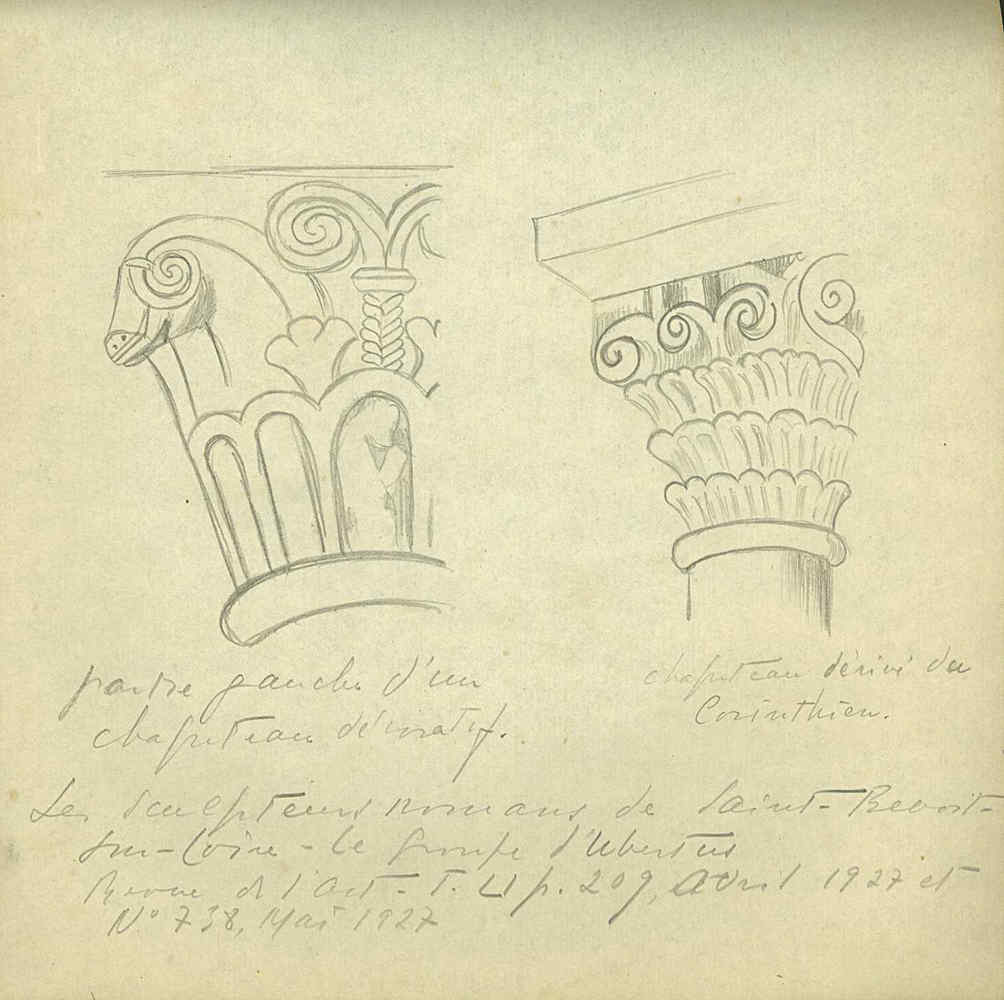 partie gauche d'un
chapiteau décoratif.
chapiteau dérivé du
Corinthien.
Les sculpteurs romans de Saint-Benoit-
sur-Loire - le groupe d'Ubertus
Revue de l'Art - T. LI p. 209, avril 1927 et
N° 738, Mai 1927